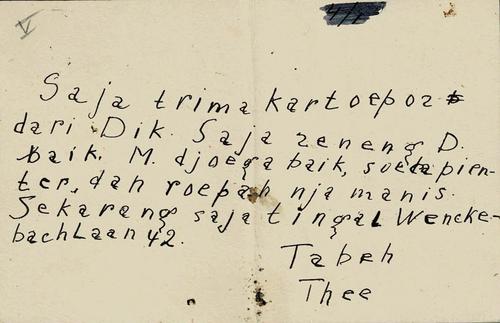 V
Saja trima kartoepos
dari Dik. Saja seneng D.
baik. M. djoega baik, soeda pien-
ter, dan roepah nja manis.
Sekarang saja tingal Wencke-
bachLaan 42.
Tabeh
Thee